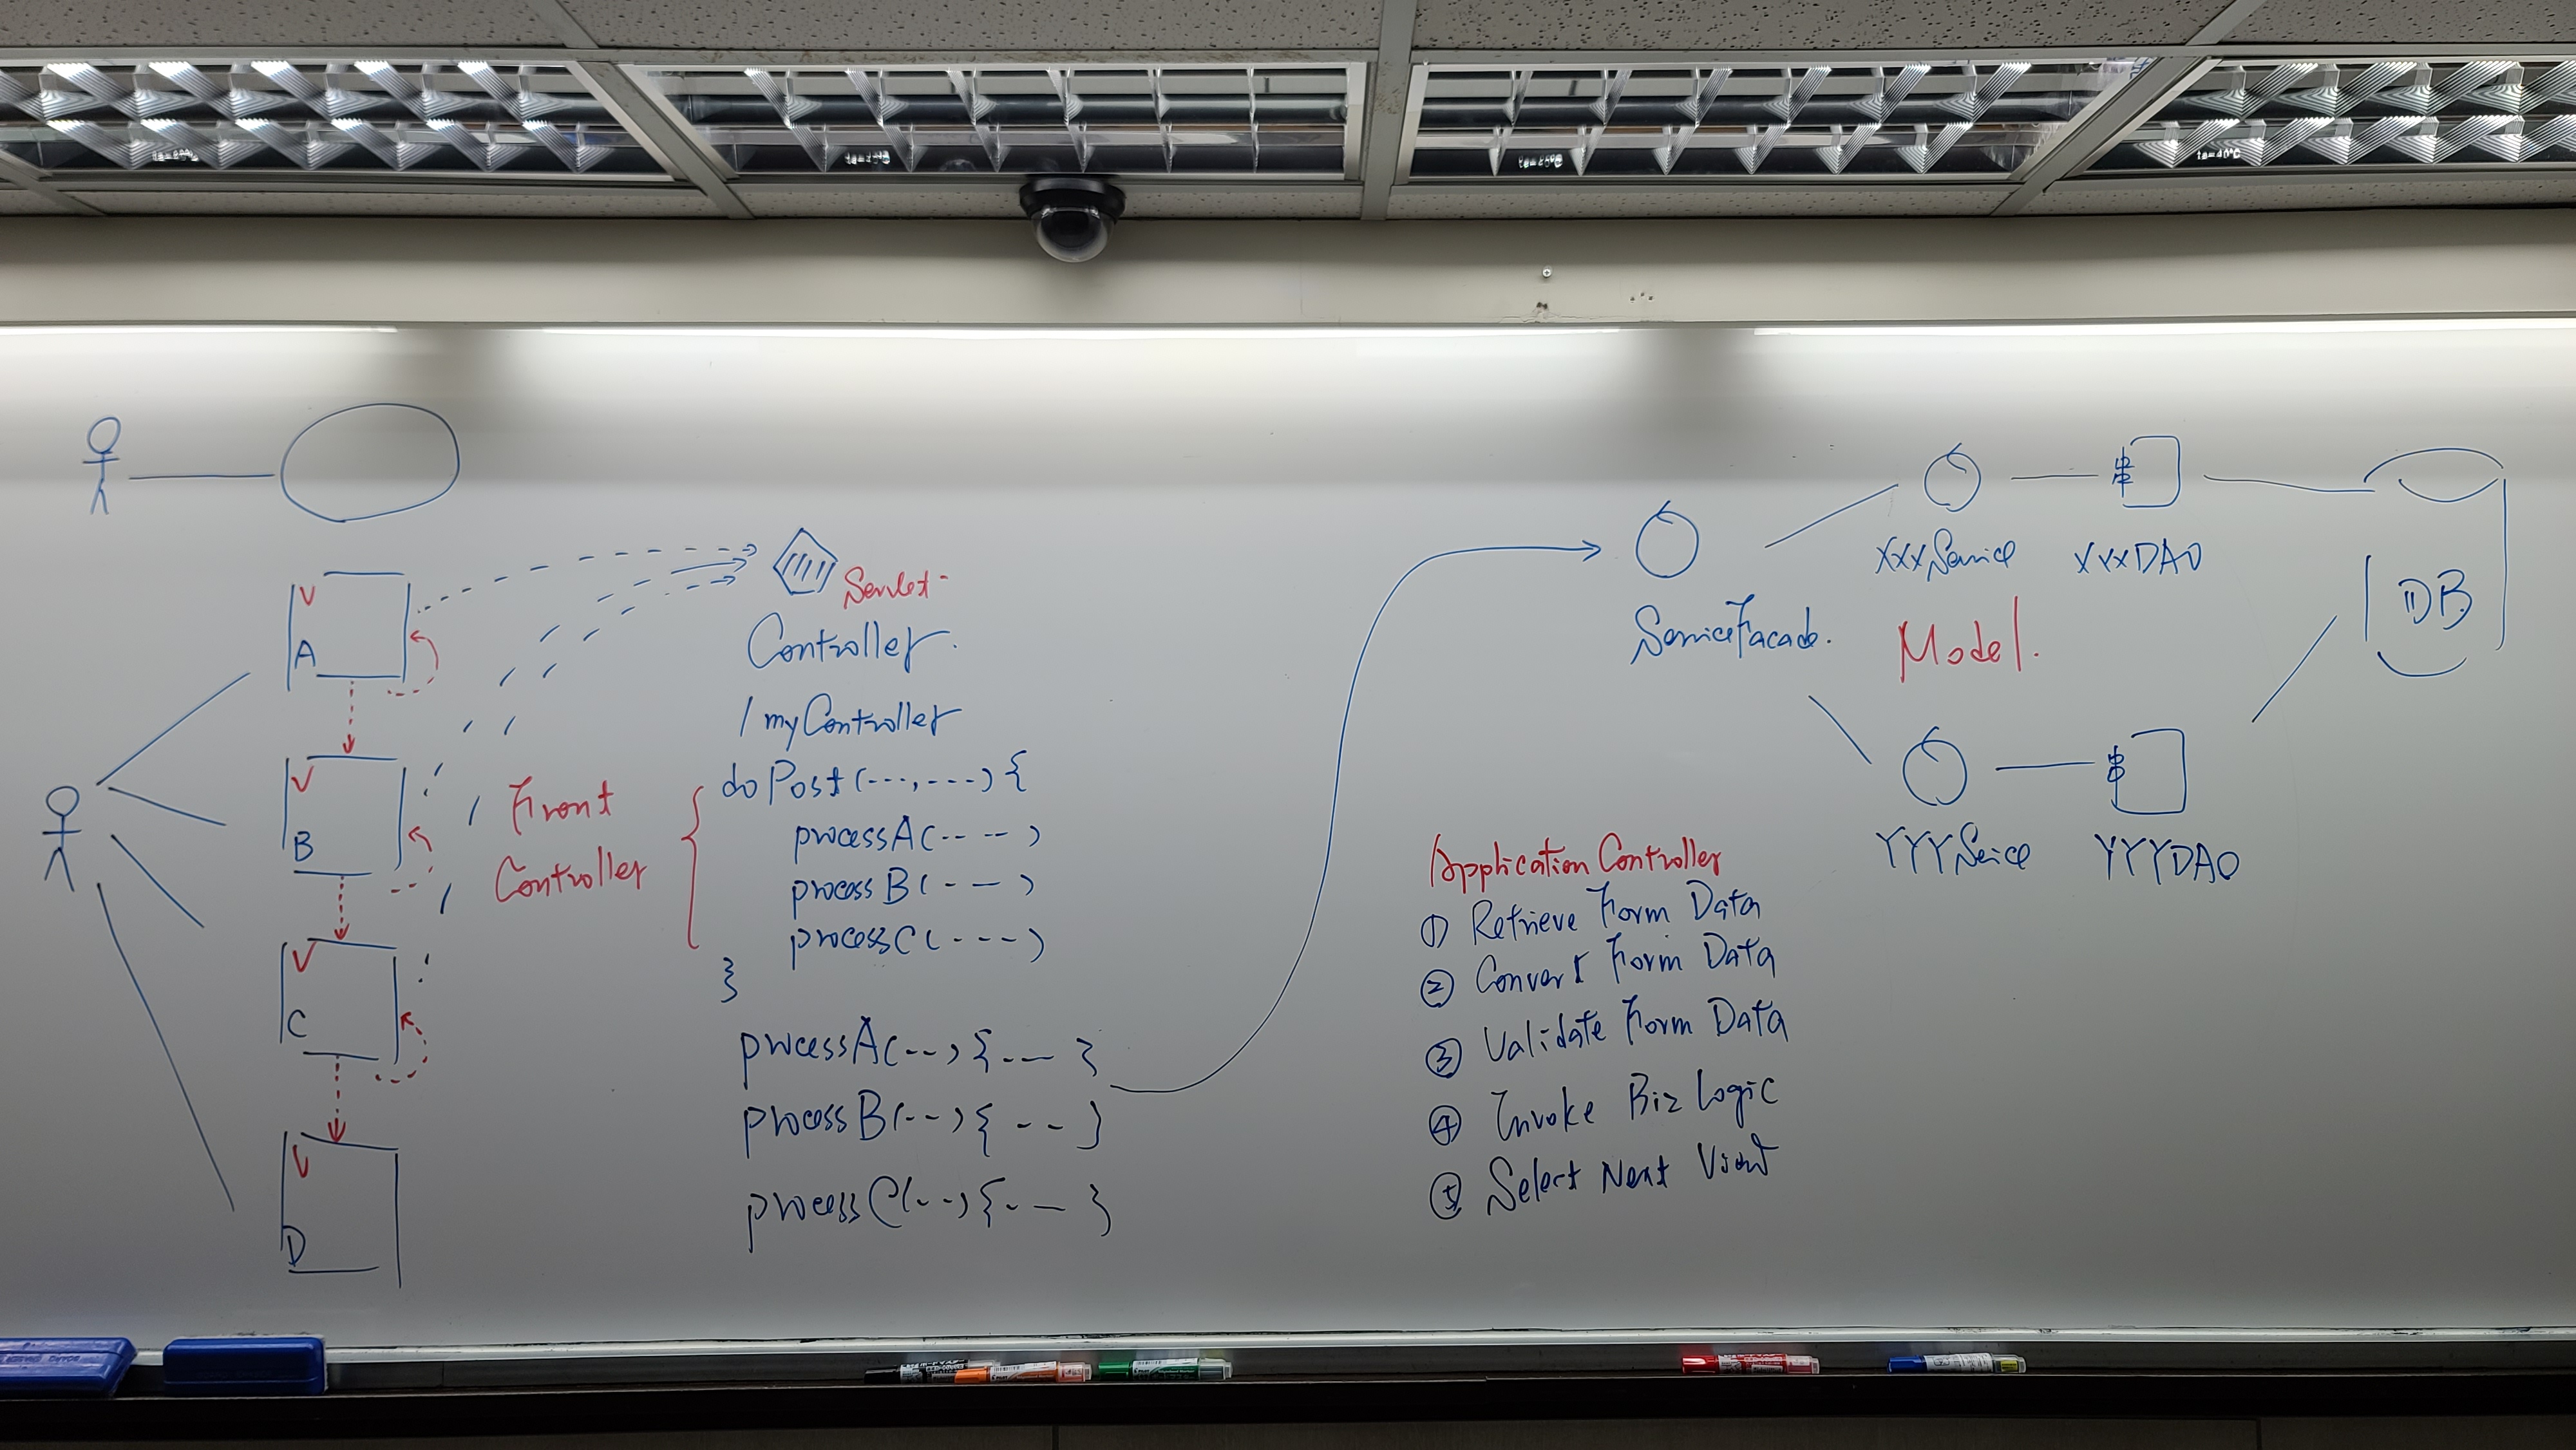 V
A
V
B
V
C
V
D
Servlet
Controller.
/myController
Front
Controller
doPost(---,----){
processA(-- --)
processB(- ---)
processC(----)
}
processA(--){--- }
processB(--){ -- }
processC(--){-- }
ServiceFacade.
XXXService
XXXDAO
Model.
DB
YYYSeice
YYYDAO
Application Controller
① Retrieve Form Data
② Convert Form Data
③ Validate Form Data
④ Invoke Biz Logic
⑤ Select Next View
ta=40°C